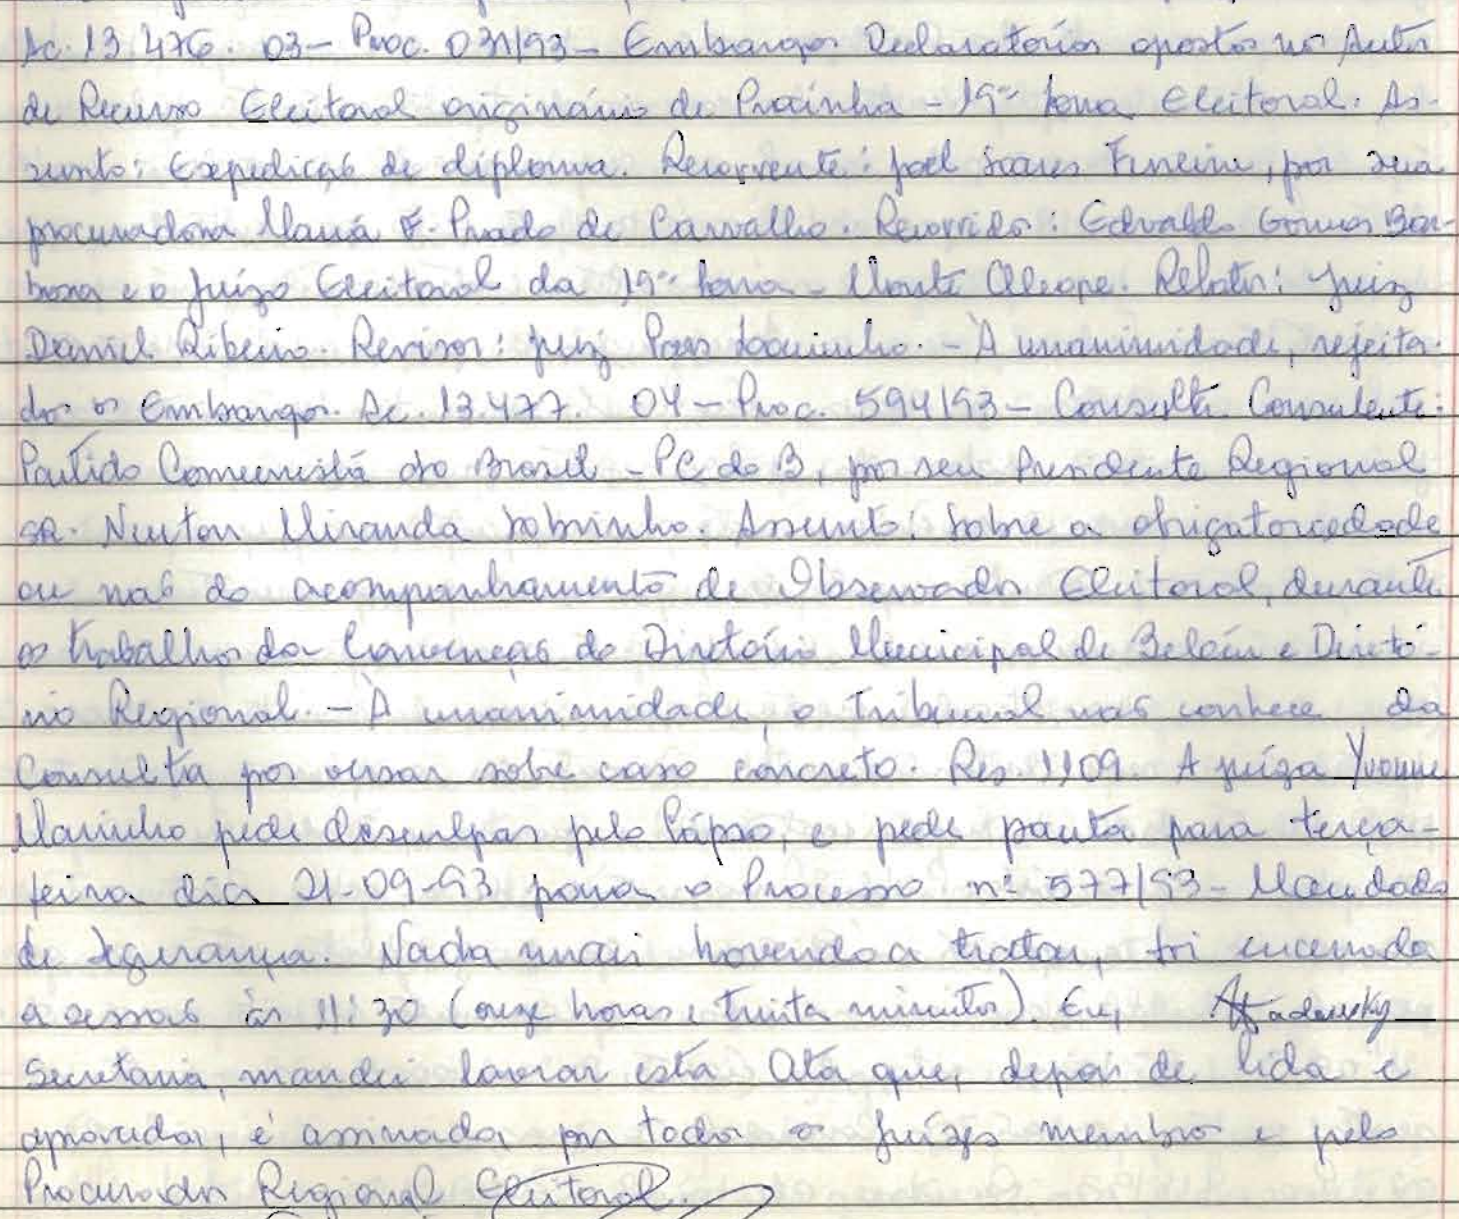 Ac. 13.476. 03 - Proc. 031/93 - Embargos Declaratórios opostos nos Autos
de Recurso Eleitoral originário de Prainha - 19ª Zona Eleitoral. As-
sunto: Expedição de diploma. Recorrente: Joel Soares Ferreira, por sua
procuradora Maria F. Prado de Carvalho. Recorrido: Edvaldo Gomes Bar-
bosa e o Juízo Eleitoral da 19ª Zona - Monte Alegre. Relator: Juiz
Daniel Ribeiro. Revisor: Juiz - À unanimidade, rejeita-
dos os Embargos. Ac. 13.477. 04 - Proc. 594/93 - Consulta Consulente:
Partido Comunista do Brasil - PC do B, por seu Presidente Regional
SR. Newton Miranda Sobrinho. Assunto: Sobre a obrigatoriedade
ou não do acompanhamento de Observador Eleitoral, durante
os trabalhos da Convenção do Diretório Municipal de Belém e Diretó-
rio Regional. - À unanimidade, o Tribunal não conhece da
Consulta por versar sobre caso concreto. Res. 1109. A juíza Yvonne
Marinho pede desculpas pelo lápso, e pede pauta para terça-
feira dia 21-09-93 para o Processo nº 577/93 - Mandado
de Segurança. Nada mais havendo a tratar, foi encerrada
a sessão às 11:30 (onze horas e trinta minutos). Eu,
Secretária, mandei lavrar esta Ata que, depois de lida e
aprovada, é assinada por todos os Juízes membros e pelo
Procurador Regional Eleitoral.